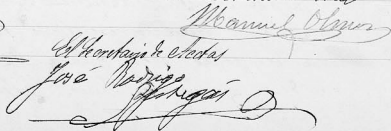 Manuel Olmos
El Secretario de Actas
José Rodrigo